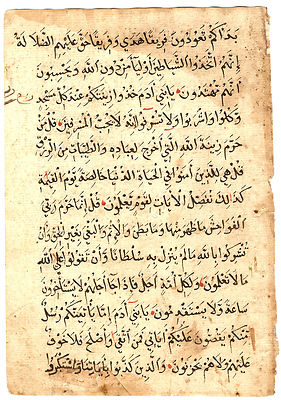 بدأكم تعودون فريقا هدى وفريقا حق عليهم الضلالة
إنهم اتخذوا الشياطين أولياء من دون الله ويحسبون
أنهم مهتدون يا بني آدم خذوا زينتكم عند كل مسجد
وكلوا واشربوا ولا تسرفوا إنه لا يحب المسرفين قل من
حرم زينة الله التي أخرج لعباده والطيبات من الرزق
قل هي للذين آمنوا في الحياة الدنيا خالصة يوم القيمة
كذلك نفصل الآيات لقوم يعلمون قل إنما حرم ربي
الفواحش ما ظهر منها وما بطن والإثم والبغي بغير الحق وأن
تشركوا بالله ما لم ينزل به سلطانا وأن تقولوا على الله
ما لا تعلمون ولكل أمة أجل فإذا جاء أجلهم لا يستأخرون
ساعة ولا يستقدمون يا بني آدم إما يأتينكم رسل
منكم يقصون عليكم آياتي فمن اتقى وأصلح فلا خوف
عليهم ولا هم يحزنون والذين كذبوا بآياتنا واستكبروا